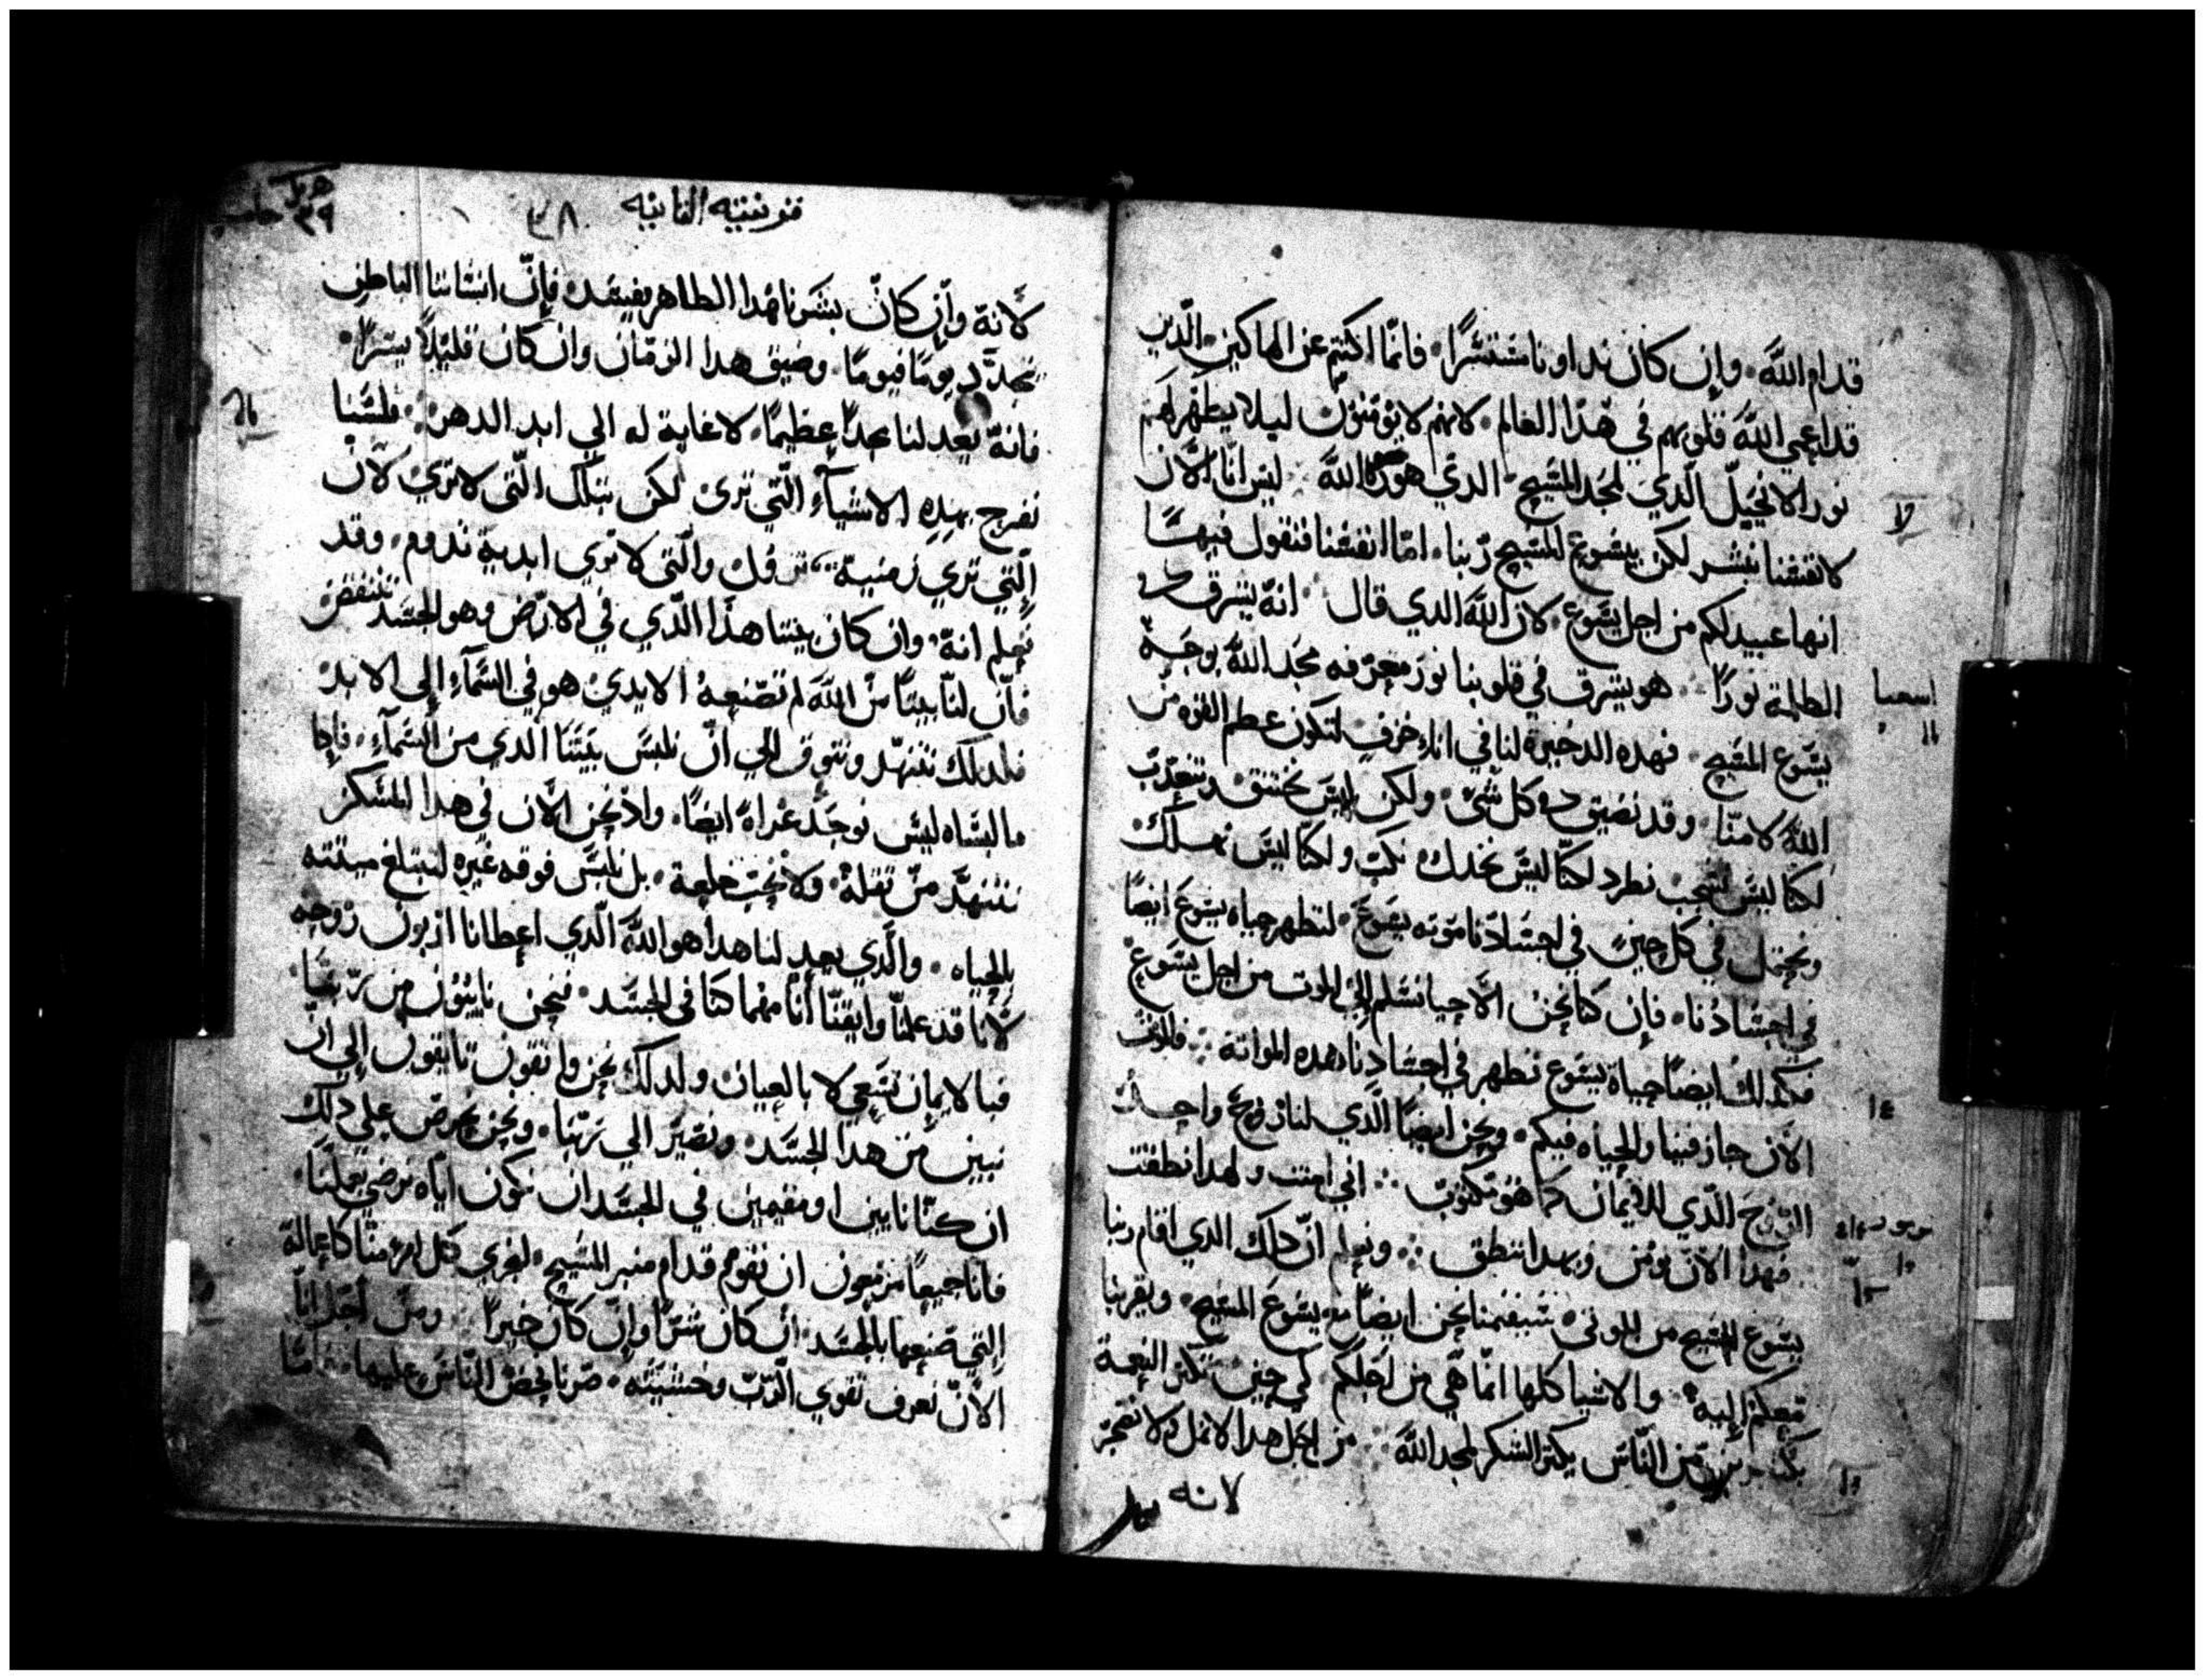 قدام الله. وإن كان نداونا مستترًا. فانما اكتتم عن الهالكين. الدين
قد اعمي الله قلوبهم في هدا العالم. لانهم لا يومنون ليلا يظهر لهم
نور الانجيل الدي لمجد المسيح الدي هو صورة الله ليس انا الان
لانفسنا نبشر لكن بيسوع المسيح ربنا. اما انفسنا فنقول فيها
انها عبيد لكم من اجل يسوع. لان الله الدي قال انه يشرق من
الظلمة نورًا هو يشرق في قلوبنا نور معرفه مجد الله بوجه
يسوع المسيح فهده الدخيرة لنا في اناء خزف لتكون عظم القوه من
الله لا منا. وقد نضيق في كل شي. ولكن ليس نختنق نتعدب
لكنا ليس نشجب نطرد لكنا ليس نخدل نكب ولكنا ليس نهلك
ونحتمل في كل حين في اجسادنا موته يسوع. لتظهر حياه يسوع ايضًا
في اجسادنا. فإن كنا نحن الاحيا نسلم إلى الموت من اجل يسوع
فكدلك ايضًا حياة يسوع تظهر في اجسادنا هده المواته فالموت
الان جاز فينا والحياه فيكم. ونحن ايضًا الدي لنا روح واحد
الروح الدي للايمان كما هو مكتوب اني امنت ولهدا نطقت
فبهدا الان نومن وبهدا ننطق ونعلم ان دلك الدي اقام ربنا
يسوع المسيح من الموتى سيقيمنا نحن ايضًا مع يسوع المسيح. ويقربنا
معكم إليه. والاشيا كلها انما هي من اجلكم. لكي حين تكتر النعمة
بكتيرين من الناس يكتر الشكر لمجد الله من اجل هدا الان لا نضجر
لانه
لا
اسعيا
١٤
١٥
قرنتيه التانيه
٣٨
لانه وإن كان بشرنا هدا الظاهر يفسد. فإن انساننا الباطن
يجدد يومًا فيومًا. وضيق هدا الزمان وان كان قليلًا يسيرًا.
فانه يعد لنا مجدًا عظيمًا. لا غاية له الي ابد الدهر. فلسنا
نفرح بهده الاشياء التي ترى لكن بتلك التي لا تري لان
التي تري زمنية تزول والتي لا تري ابدية تدوم. وقد
نعلم انه. وان كان بيتنا هدا الدي في الارض وهو الجسد ينتقض
فان لنا بيتًا من الله لم تصنعه الايدي هو في السماء إلى الابد
فلدلك نتنهد ونتوق الي ان نلبس بيتنا الدي من السماء. فإدا
ما لبسناه ليس نوجد عراة ايضًا. واد نحن الان في هدا المسكن
نتنهد من تقله. ولا نحب خلعه. بل نلبس فوقه غيره لتبتلع ميتته
بالحياه. والدي يعد لنا هدا هو الله الدي اعطانا اربون روحه
لانا قد علمنا وايقنا أنا مهما كنا في الجسد. فنحن نايبون من ربنا.
فبالايمان نسعي لا بالعيان ولدلك نحن واتقون تايقون إلي ان
نبين من هدا الجسد. ونصير الي ربنا. ونحن نحرص علي دلك
ان كنا نايين او مقيمين في الجسد ان نكون اياه نرضي بعملنا.
فانا جميعًا مزمعون ان نقوم قدام منبر المسيح. ليجزي كل امرء منا كاعماله
التي صنعها بالجسد ان كان شرًا وإن كان خيرًا ومن أجل انا
الان نعرف تقوي الرب وخشيته. صرنا نحض الناس عليها. امّا